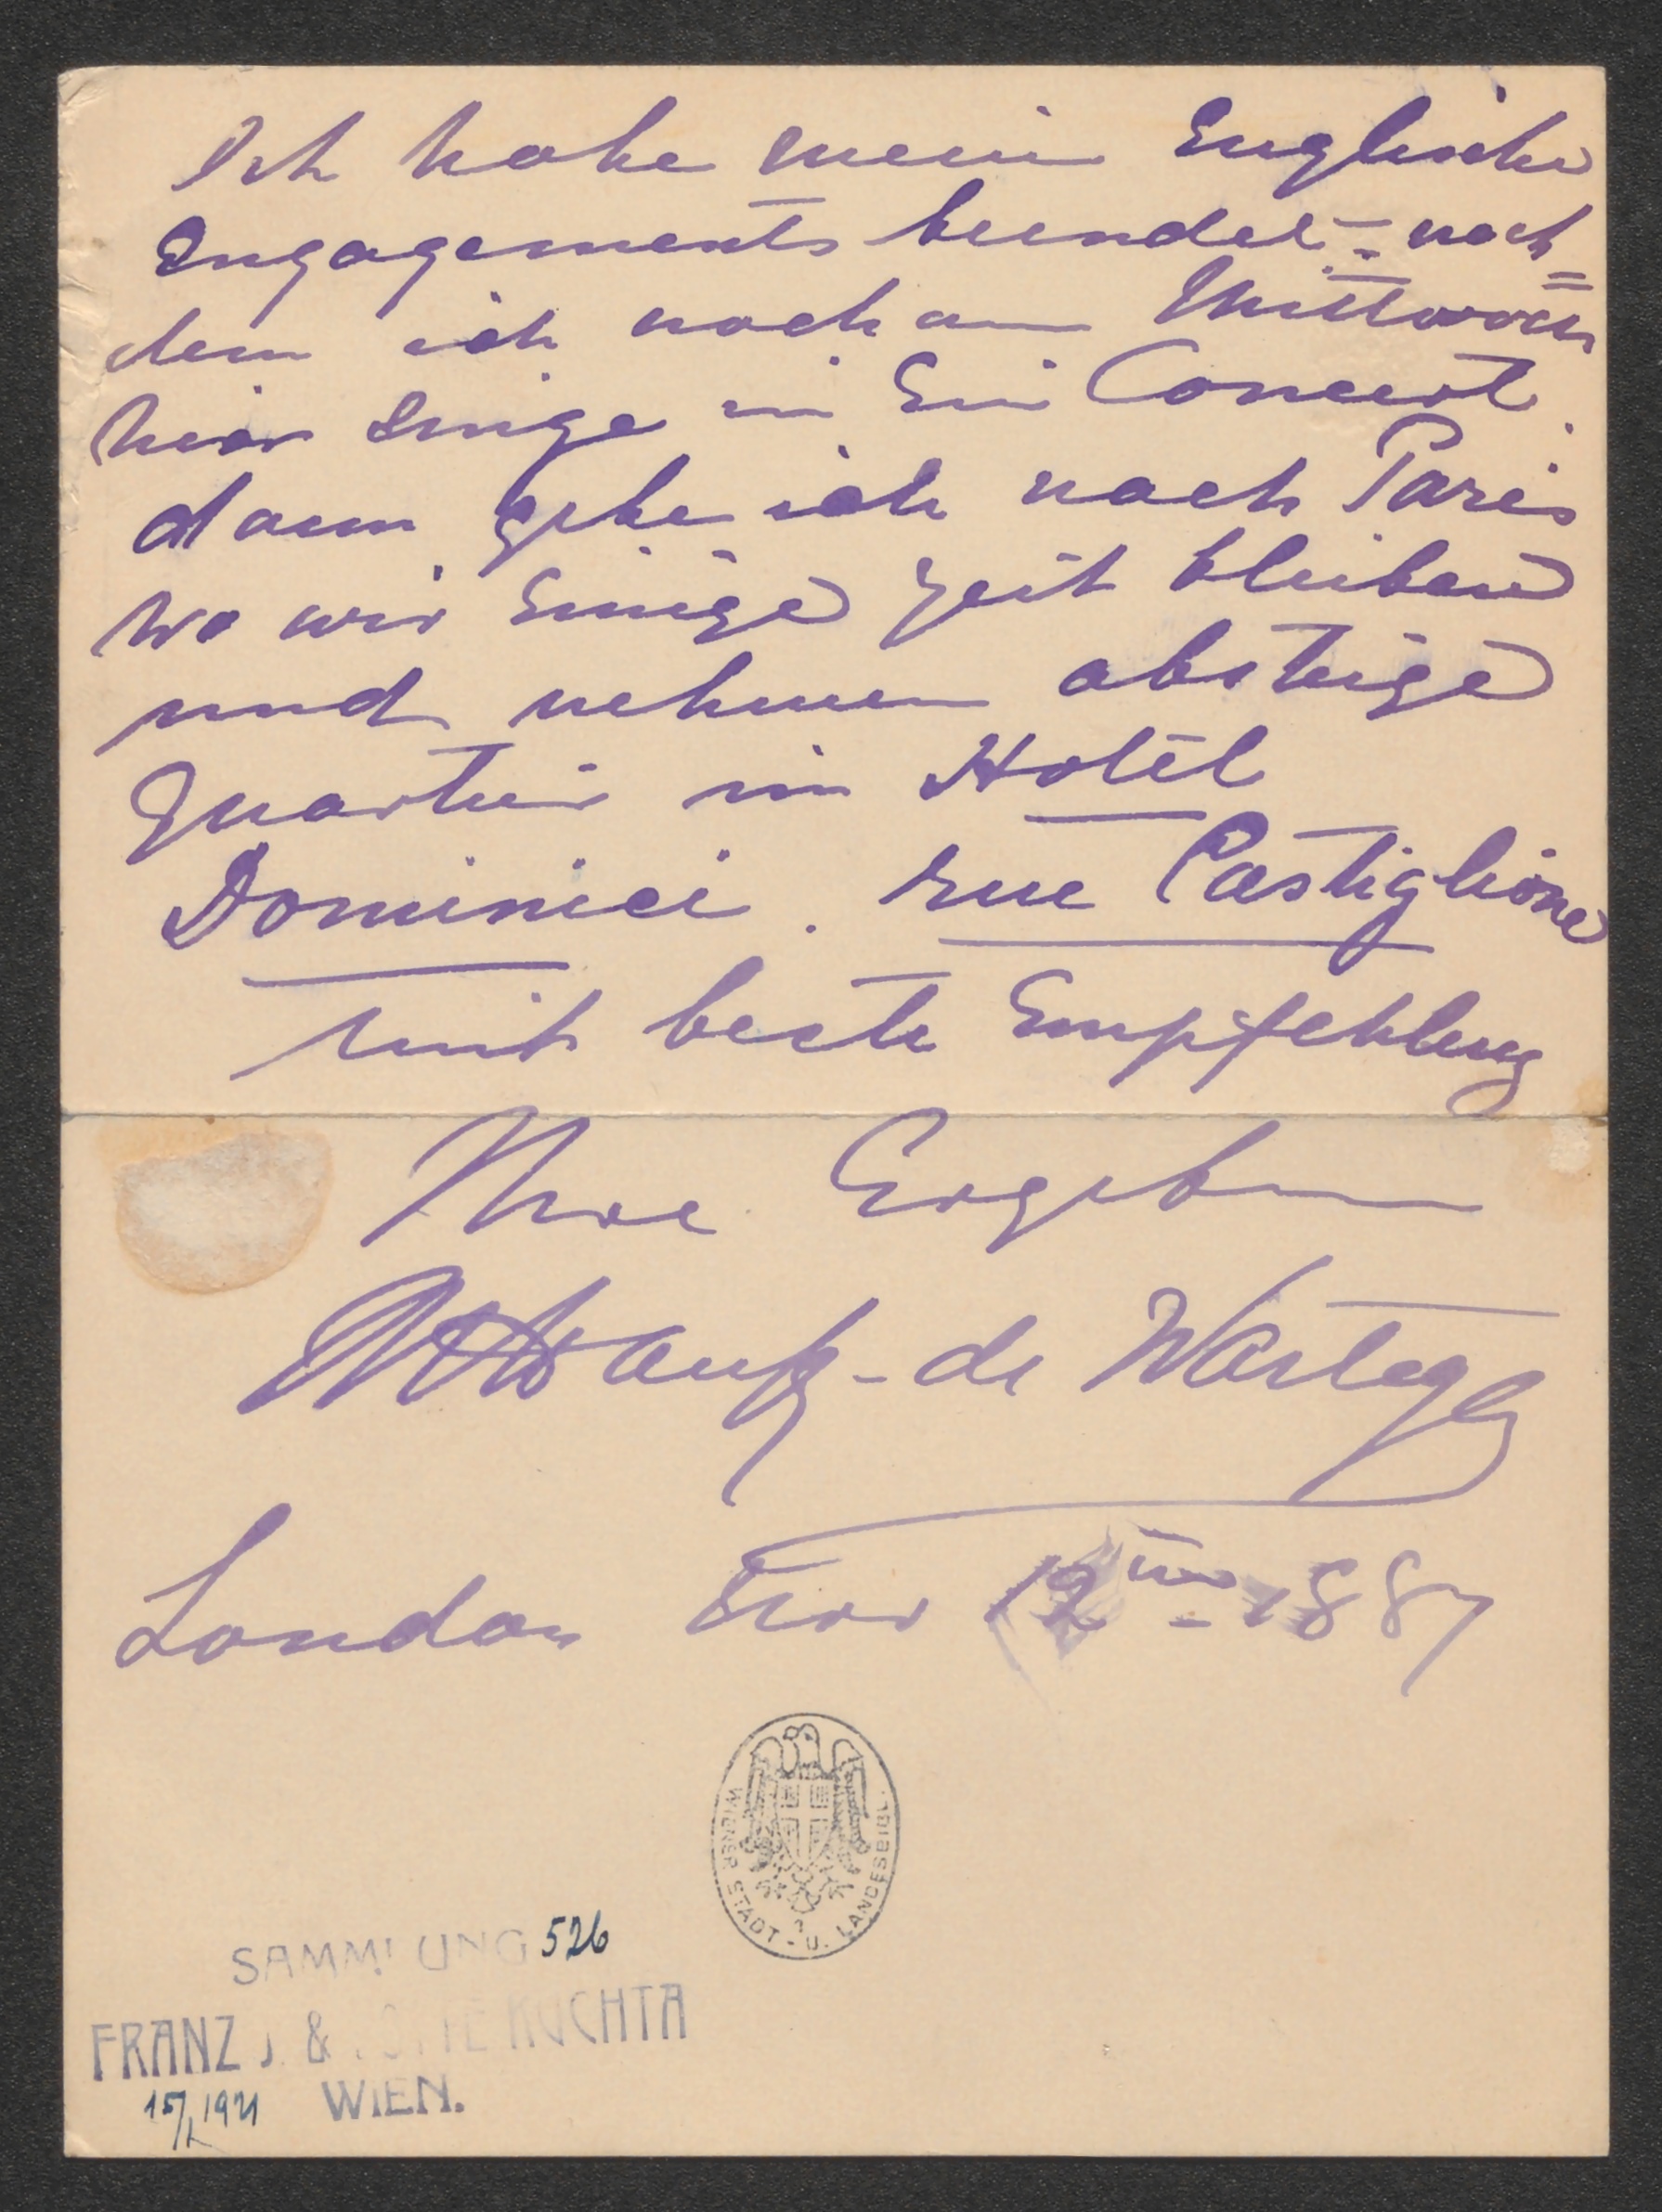 Ich habe mein Englische
Engagements beendet - nach=
dem ich noch am Mittwoch
hier singe in Ein Concert.
dann gehe ich nach Paris
wo wir Einige Zeit bleiben
und nehmen absteige
Quartier im Hotel
Dominici. rue Castiglione
mit beste Empfehlung
Ihre Ergeben
MHauk-de Wartegg
London 12 1887
WIENER STADT- U. LANDESBIBL.
SAMMLUNG 526
FRANZ J. & KUCHTA
WIEN.